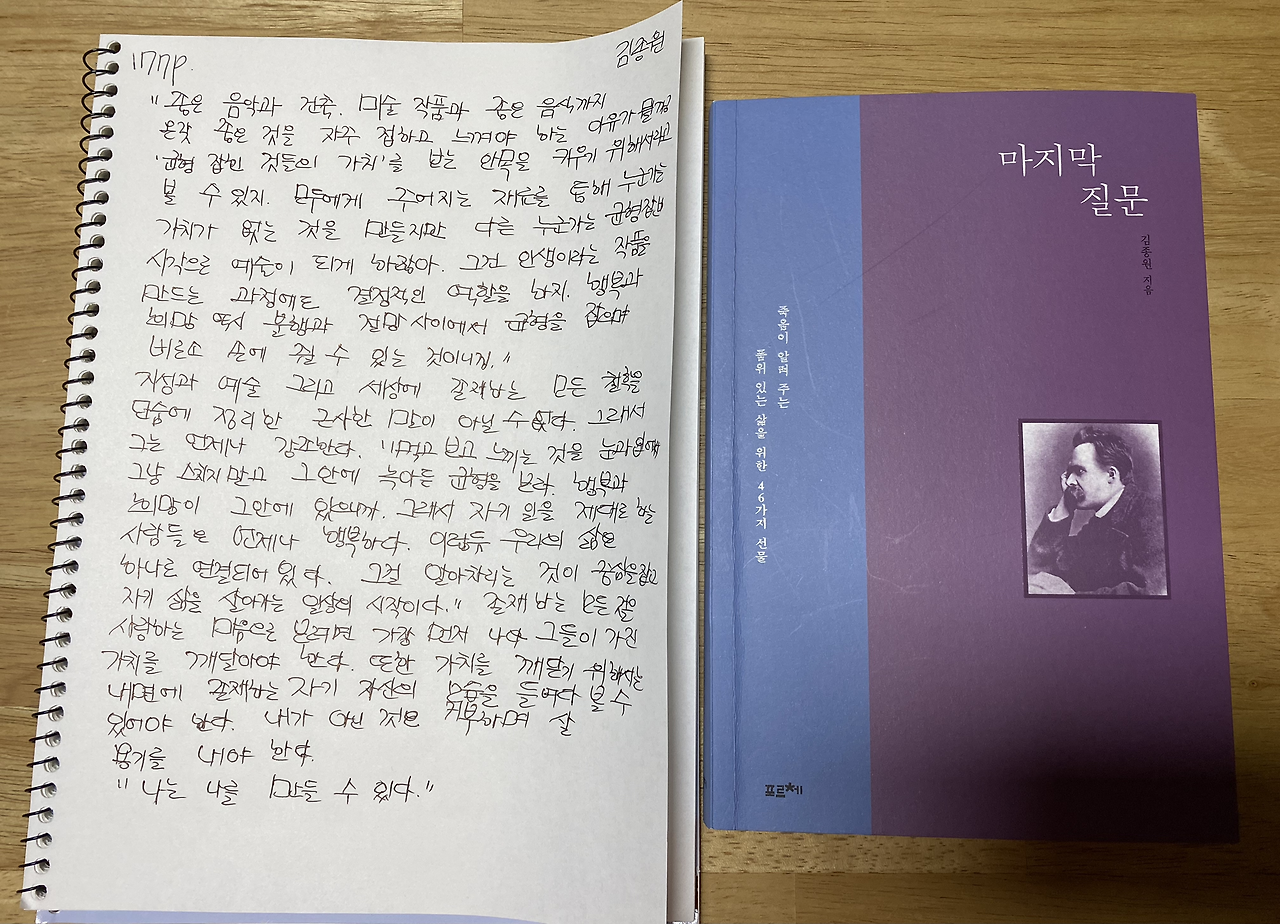 177p.
김종원
"좋은 음악과 건축, 미술 작품과 좋은 음식까지
온갖 좋은 것을 자주 접하고 느껴야 하는 이유가 뭘까?
'균형 잡힌 것들의 가치'를 보는 안목을 키우기 위해서라고
볼 수 있지. 모두에게 주어지는 재료를 통해 누군가는
가치가 없는 것을 만들지만 다른 누군가는 균형잡힌
시각으로 예술이 되게 하잖아. 그건 인생이라는 작품을
만드는 과정에도 결정적인 역할을 하지. 행복과
희망 역시 불행과 절망 사이에서 균형을 잡으며
비로소 손에 쥘 수 있는 것이니깊."
지성과 예술 그리고 세상에 존재하는 모든 철학을
단숨에 정리한 근사한 말이 아닐 수 없다. 그래서
그는 언제나 강조한다. "먹고 보고 느끼는 것을 눈과 입에
그냥 스치지 말고 그 안에 녹아든 균형을 보라. 행복과
희망이 그 안에 있으니까. 그래서 자기 일을 제대로 하는
사람들은 언제나 행복하다. 이렇듯 우리의 삶은
하나로 연결되어 있다. 그걸 알아차리는 것이 중심을 잡고
자기 삶을 살아가는 일상의 시작이다." 존재하는 모든 것을
사랑하는 마음으로 보려면 가장 먼저 나와 그들이 가진
가치를 깨달아야 한다. 또한 가치를 깨닫기 위해서는
내면에 존재하는 자기 자신의 모습을 들여다 볼 수
있어야 한다. 내가 아닌 것은 거부하며 살
용기를 내야 한다.
"나는 나를 만들 수 있다."
마지막
질문
김종원 지음
죽음이 알려 주는
품위 있는 삶을 위한 46가지 선물
프르체